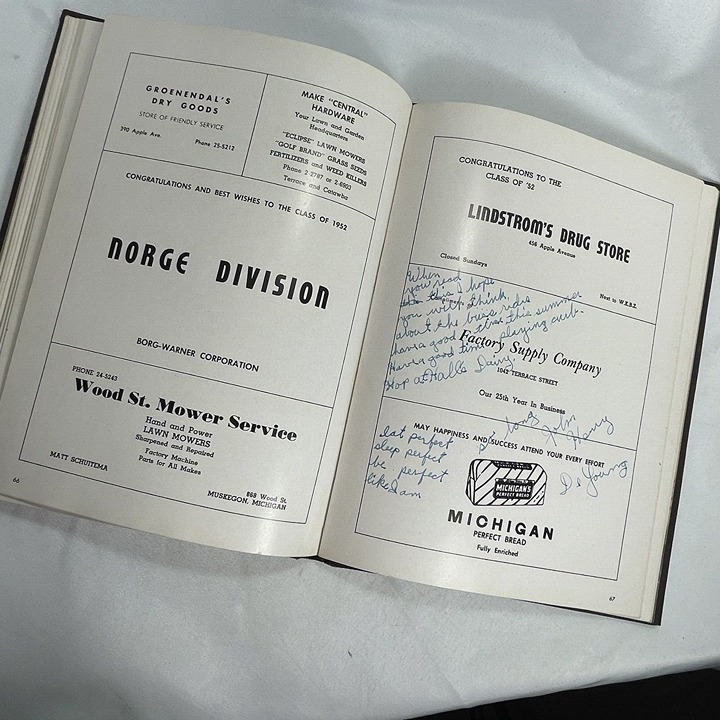 GROENENDAL'S
DRY GOODS
STORE OF FRIENDLY SERVICE
390 Apple Ave.
Phone 25-5212
MAKE "CENTRAL"
HARDWARE
Your Lawn and Garden
Headquarters
"ECLIPSE" LAWN MOWERS
"GOLF BRAND" GRASS SEEDS
FERTILIZERS and WEED KILLERS
Phone 2-2787 or 2-6903
Terrace and Catawba
CONGRATULATIONS AND BEST WISHES TO THE CLASS OF 1952
NORGE DIVISION
BORG-WARNER CORPORATION
PHONE 24-5243
Wood St. Mower Service
Hand and Power
LAWN MOWERS
Sharpened and Repaired
Factory Machine
Parts for All Makes
MATT SCHUITEMA
868 Wood St.
MUSKEGON, MICHIGAN
66
CONGRATULATIONS TO THE
CLASS OF '52
LINDSTROM'S DRUG STORE
458 Apple Avenue
Closed Sundays
Next to W.K.B.Z.
When
you read
this I hope
you will think
about the bus rides
have a good time this summer
Have a good time playing out
Hop at Halls Dairy.
Factory Supply Company
1042 TERRACE STREET
Our 25th Year In Business
So long
John
Harry
De Young
MAY HAPPINESS AND SUCCESS ATTEND YOUR EVERY EFFORT
eat perfect
sleep perfect
be perfect
like I am
MICHIGAN'S
PERFECT BREAD
MICHIGAN
PERFECT BREAD
Fully Enriched
67